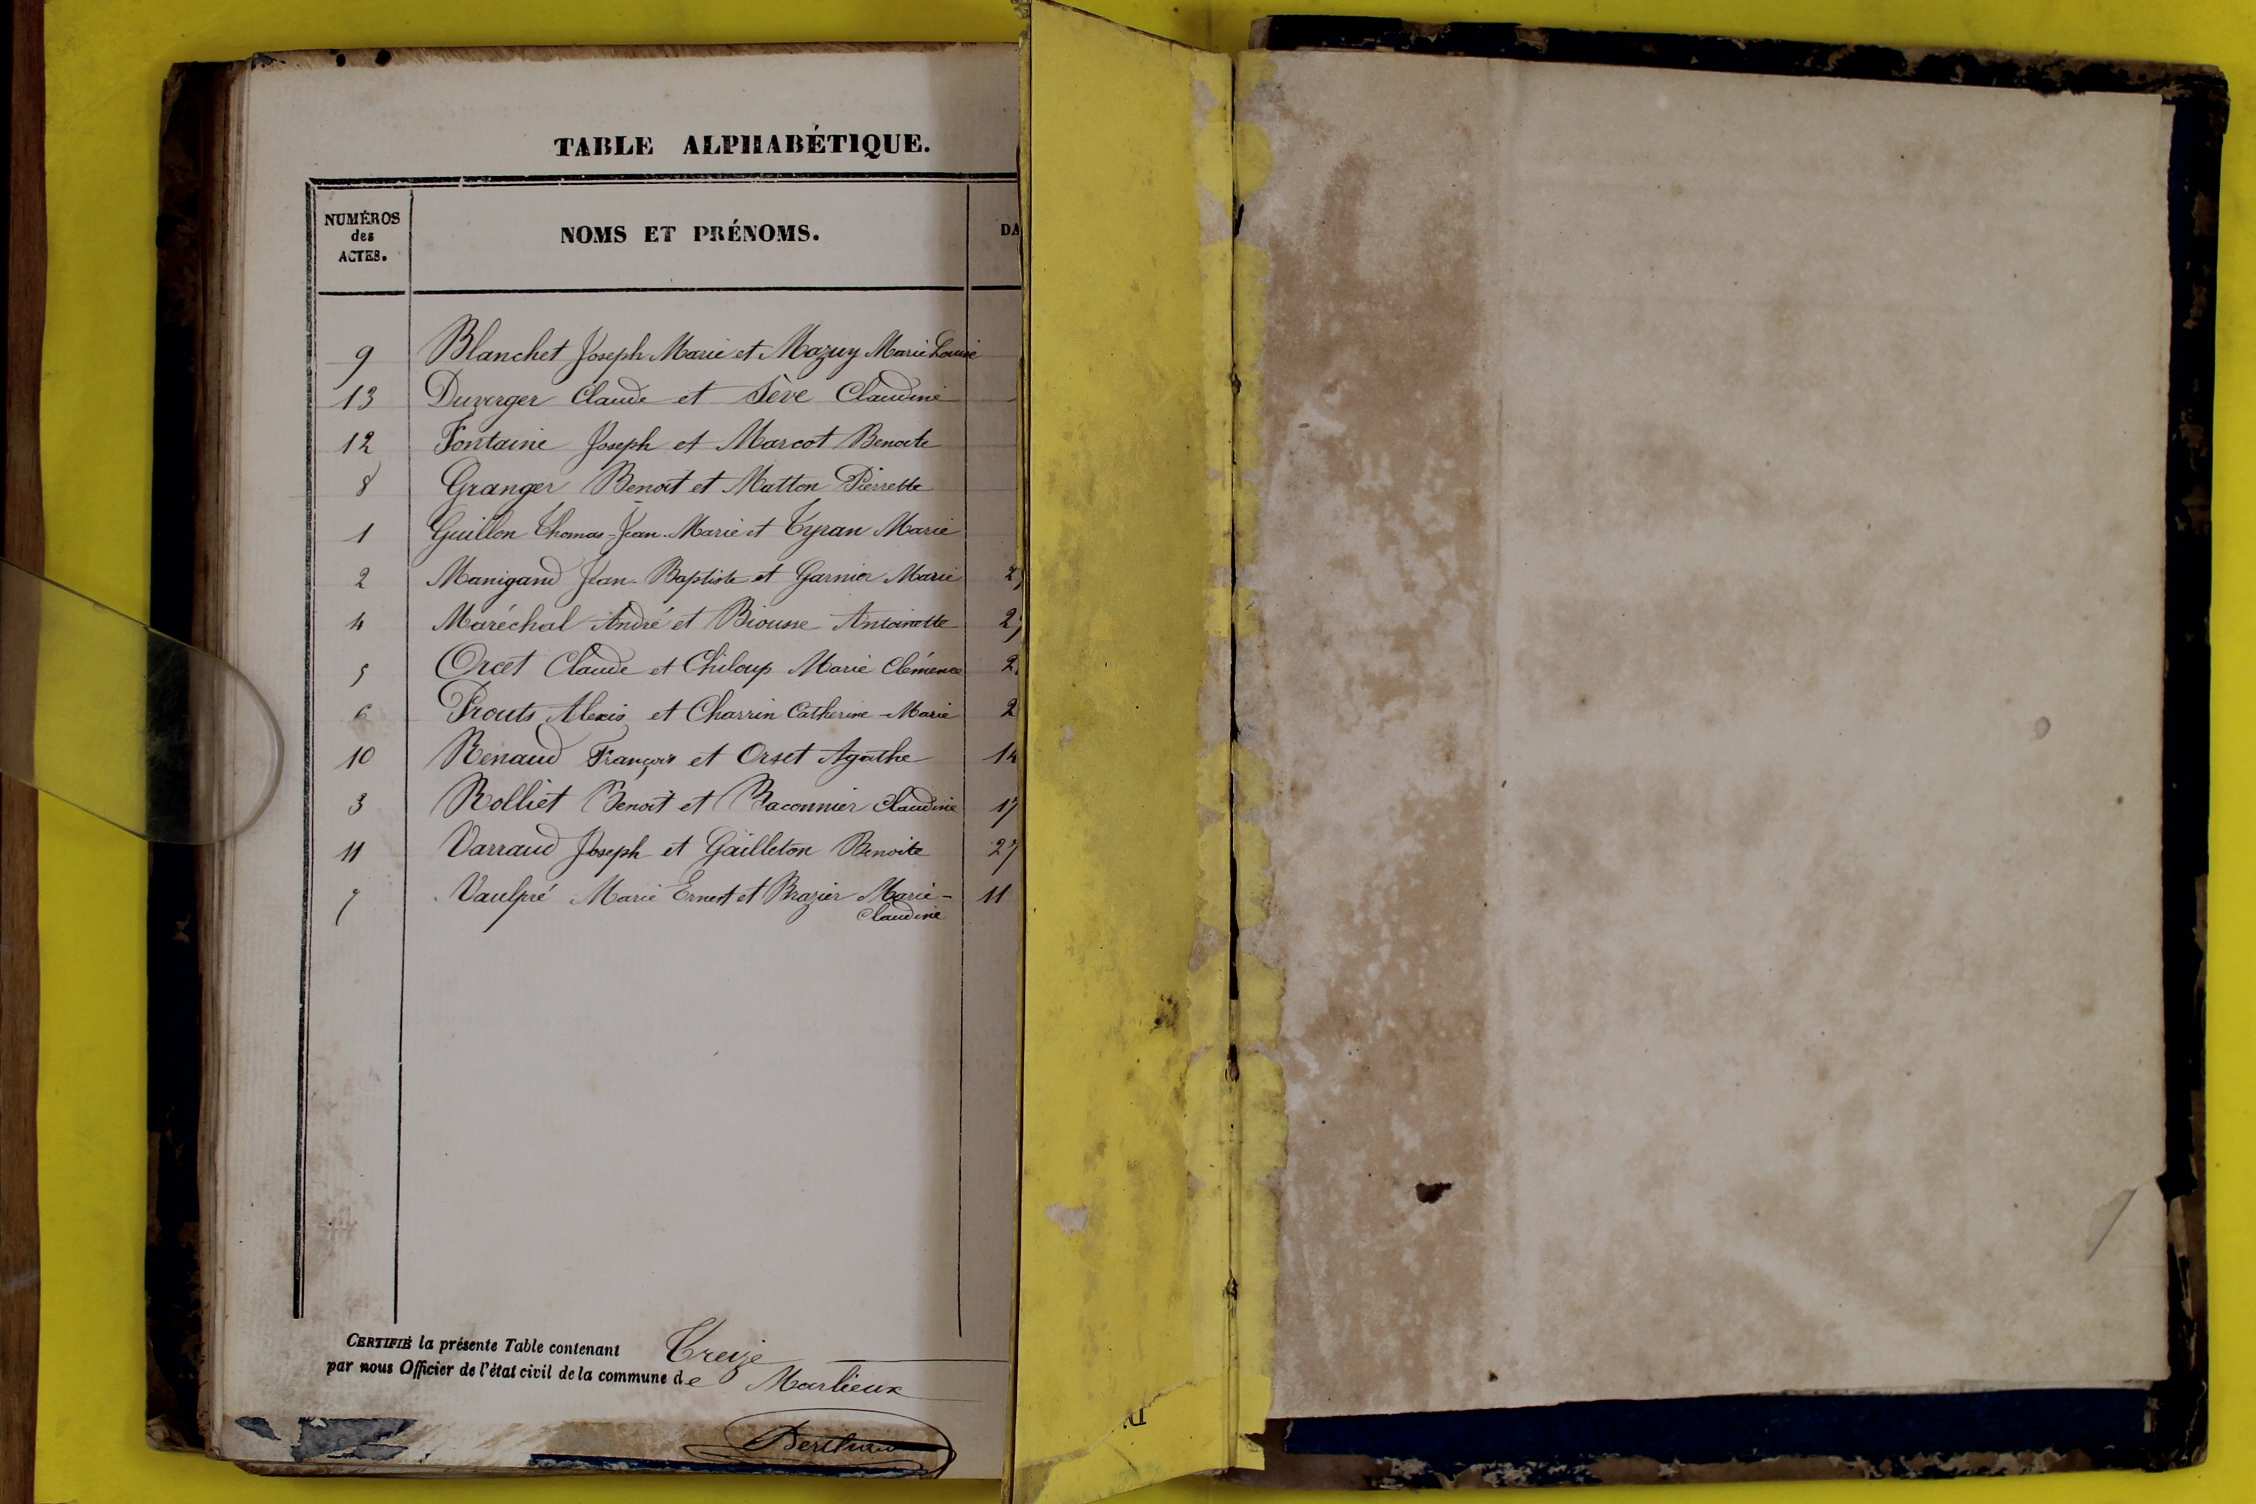 TABLE ALPHABÉTIQUE.
NUMÉROS
des
ACTES.
NOMS ET PRÉNOMS.
DA
9 Blanchet Joseph Marie et Mazuy Marie Louise
13 Duverger Claude et Sève Claudine
12 Fontaine Joseph et Marcot Benoite
8 Granger Benoit et Matton Pierrette
1 Guillon Thomas-Jean-Marie et Tyran Marie
2 Manigand Jean-Baptiste et Garnier Marie 2
4 Maréchal André et Biousse Antoinette 2
5 Orcet Claude et Chiloup Marie Clémence 2
6 Prouts Alexis et Charrin Catherine-Marie 2
10 Renaud François et Orset Agathe 14
3 Rolliet Benoit et Baconnier Claudine 17
11 Varraud Joseph et Gailleton Benoite 27
7 Vaulpré Marie Ernest et Brazier Marie- 11
Claudine
CERTIFIÉ la présente Table contenant Treize
par nous Officier de l'état civil de la commune de Marlieux